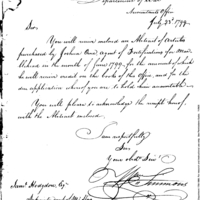 Department of War
Accountants Office
July 23d 1799.
Sir,
You will receive enclosed an Abstract of Articles
purchased by Joshua Orne, agent of Fortifications for Mar
blehead in the month of June 1799. for the amount of which
he will receive credit on the books of this Office, and for the
due application whereof you are to hold him accountable.
You will please to acknowledge the receipt hereof
with the Abstract enclosed.
I am respectfully
Sir
Your obedt. Servt.
Wm Simmons
Saml. Hodgdon, Esqr.